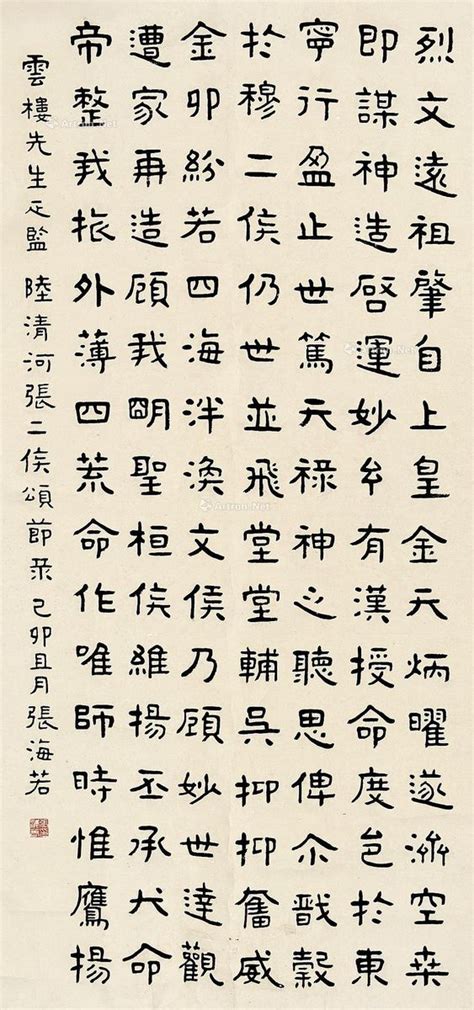 烈文遠祖肇自上皇金天炳曜遂濟空桒
即謀神造啓運妙有漢授命度邑於東
寧行盈止世篤天祿神之聽思俾尒戩穀
於穆二侯仍世並飛堂堂輔吳抑抑奮威
金卯紛若四海泮渙文侯乃顧妙世達觀
遭家再造顧我朙聖桓侯維揚丕承大命
帝整我旅外薄四荒命作唯師時惟鷹揚
雲樓先生正監 陸清河張二侯頌節录 己卯且月張海若